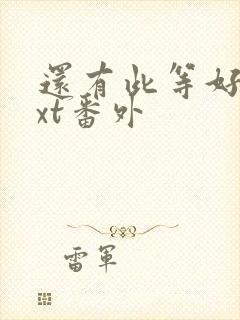 還有此等好
xt番外
雷軍